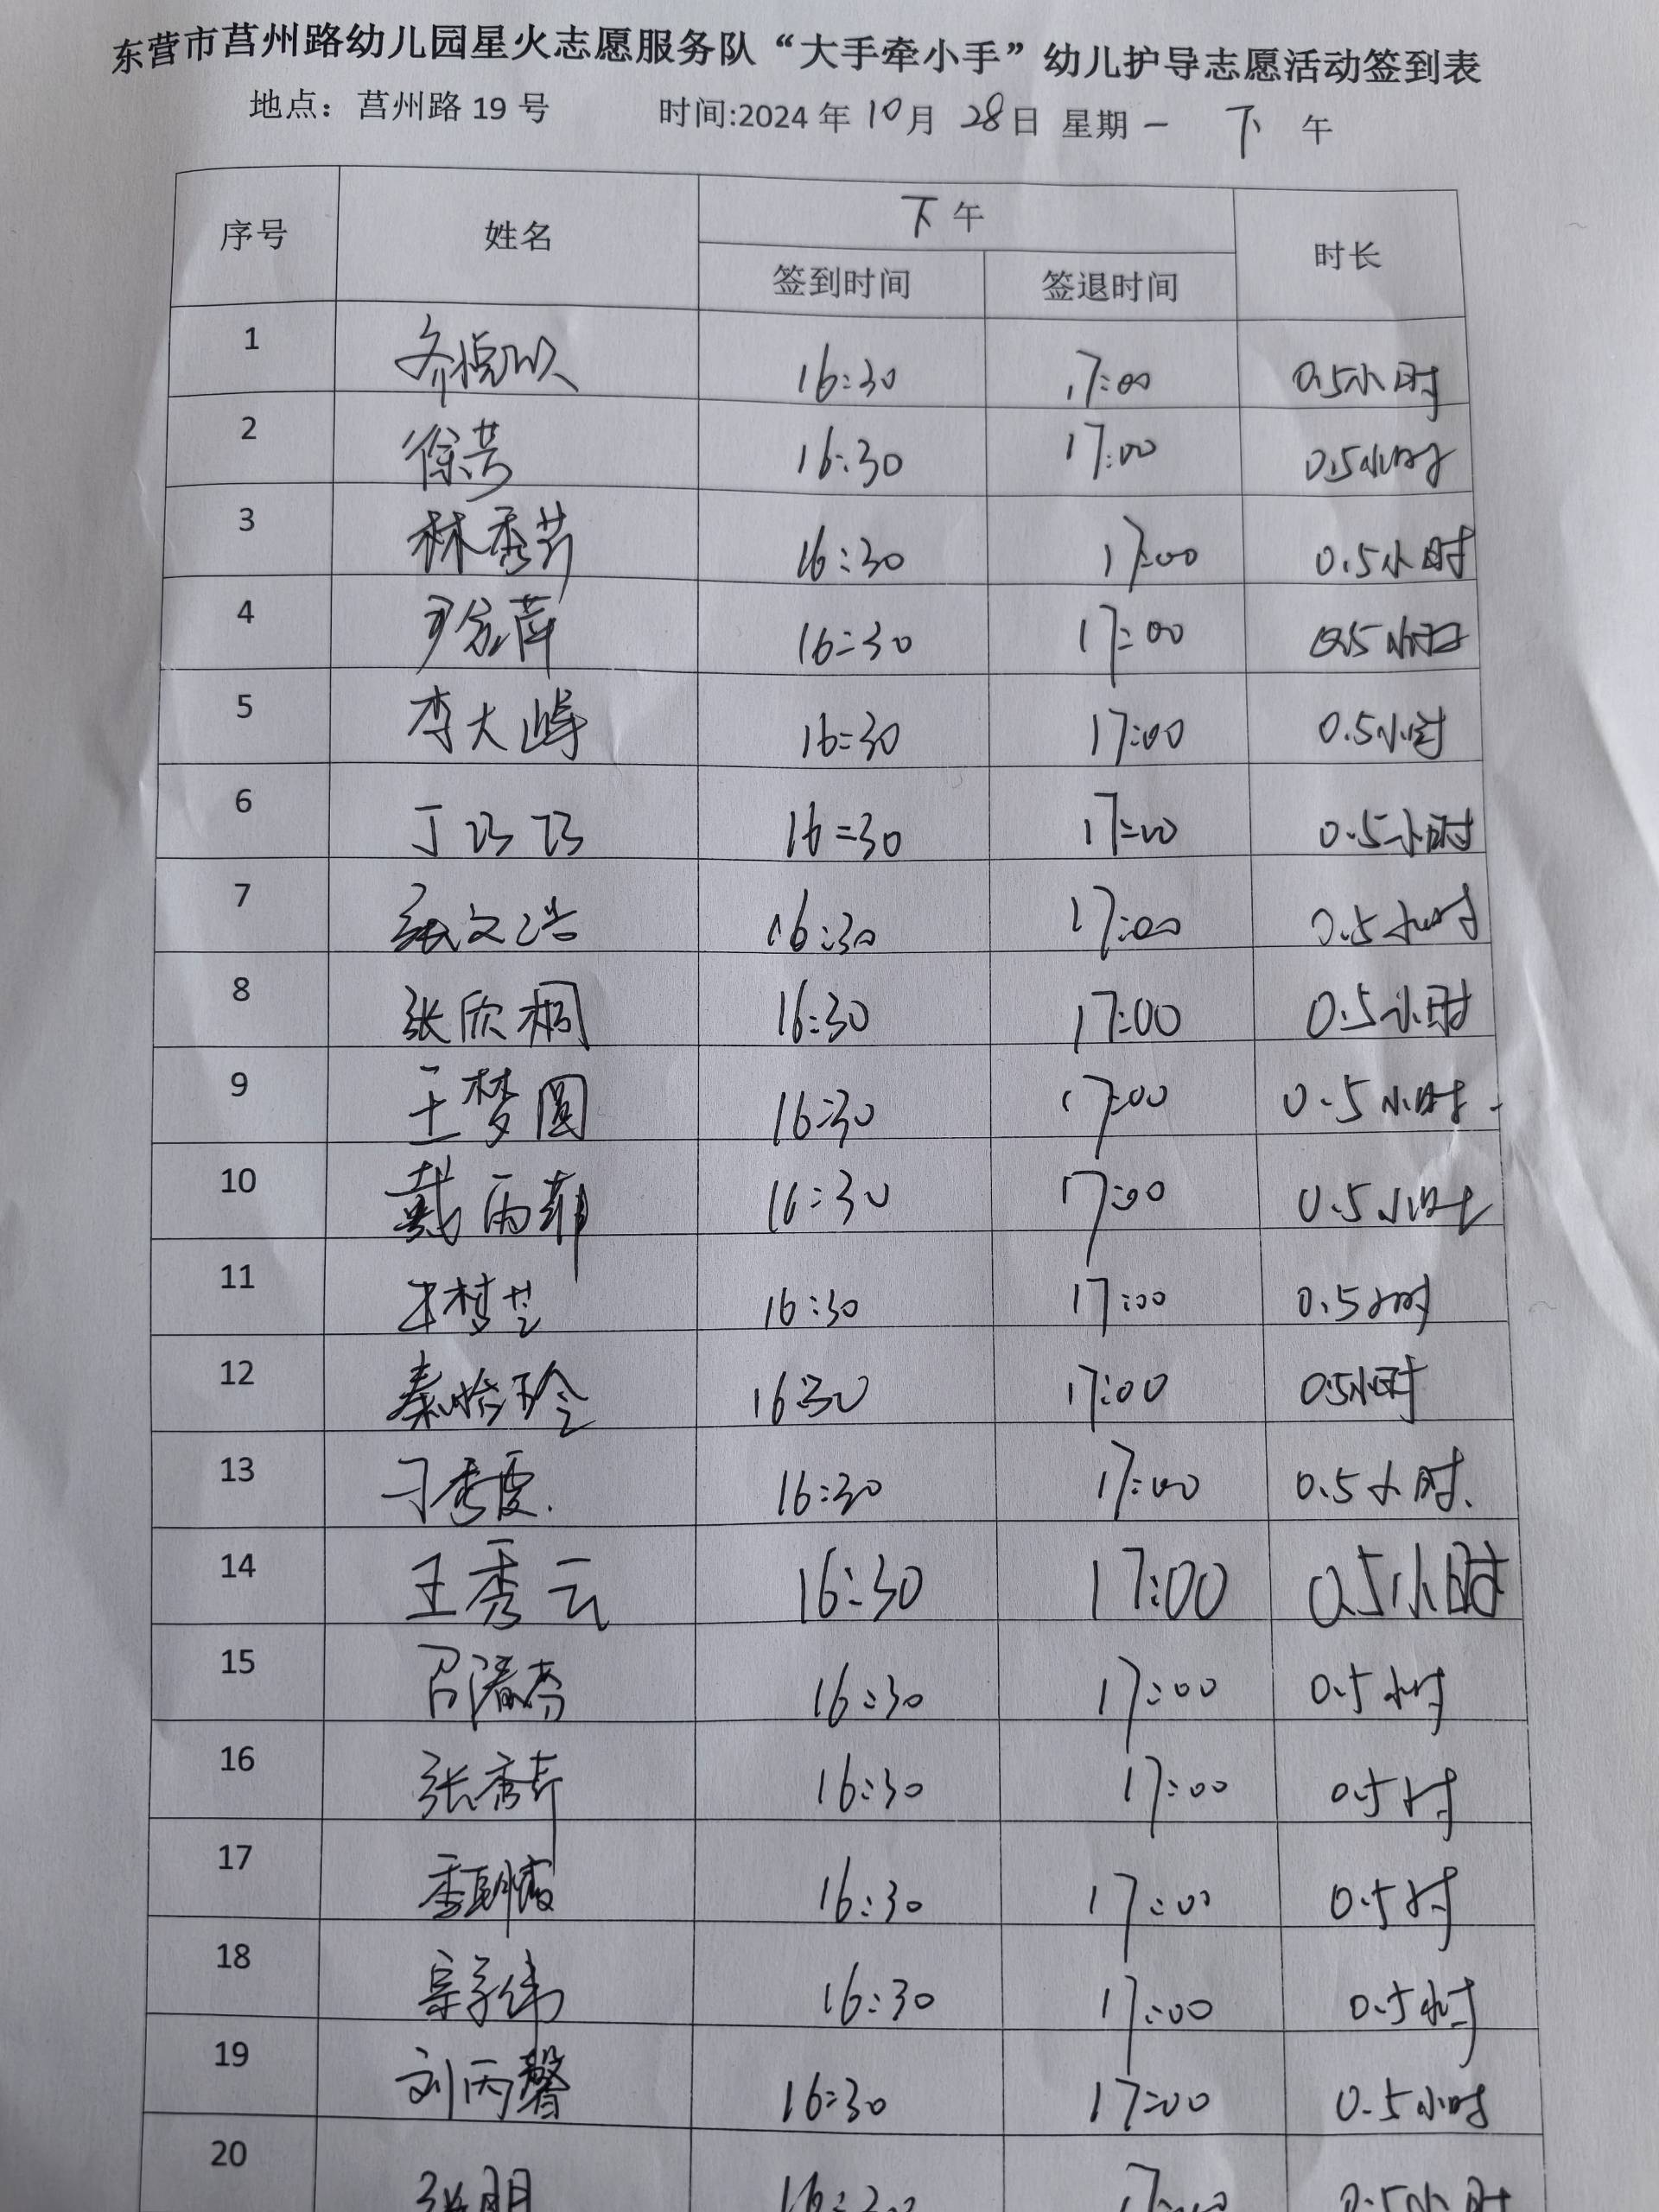 东营市莒州路幼儿园星火志愿服务队“大手牵小手”幼儿护导志愿活动签到表
地点：莒州路 19 号 时间:2024 年 10 月 28 日 星期 一 下 午
序号 姓名 下 午 时长
签到时间 签退时间
1 16:30 17:00 0.5小时
2 徐芳 16:30 17:00 0.5小时
3 林秀芹 16:30 17:00 0.5小时
4 16:30 17:00 0.5小时
5 李大峰 16:30 17:00 0.5小时
6 丁巧巧 16:30 17:00 0.5小时
7 张文浩 16:30 17:00 0.5小时
8 张欣桐 16:30 17:00 0.5小时
9 王梦圆 16:30 17:00 0.5小时
10 戴雨菲 16:30 17:00 0.5小时
11 16:30 17:00 0.5小时
12 秦怡玲 16:30 17:00 0.5小时
13 16:30 17:00 0.5小时
14 王秀云 16:30 17:00 0.5小时
15 16:30 17:00 0.5小时
16 张秀芹 16:30 17:00 0.5小时
17 16:30 17:00 0.5时
18 宗学伟 16:30 17:00 0.5小时
19 刘丙馨 16:30 17:00 0.5小时
20 16:30 17:00 0.5小时